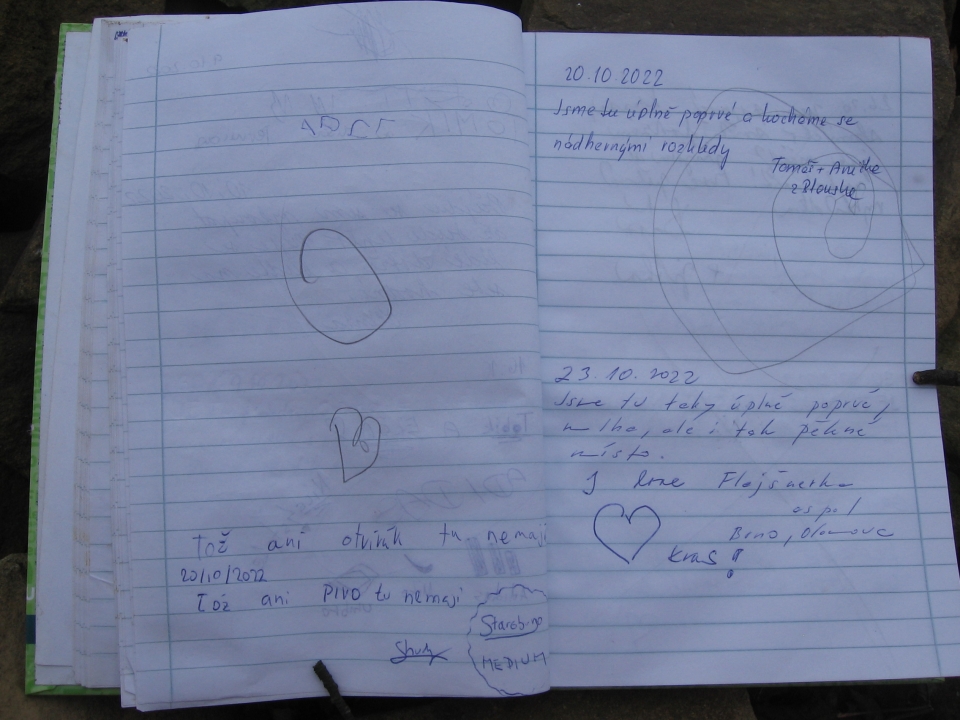 Tož ani otvírák tu nemají
20/10/2022
Tož ani PIVO tu nemají
Starobrno
MEDIUM
20.10.2022
Jsme tu úplně poprvé a kocháme se
nádhernými rozhledy
Tomáš + Anežka
z Blanska
23.10.2022
Jsme tu taky úplně poprvé,
mlha, ale i tak pěkné
místo.
I love Flajšnerka
Brno, Olomouc
Kras!